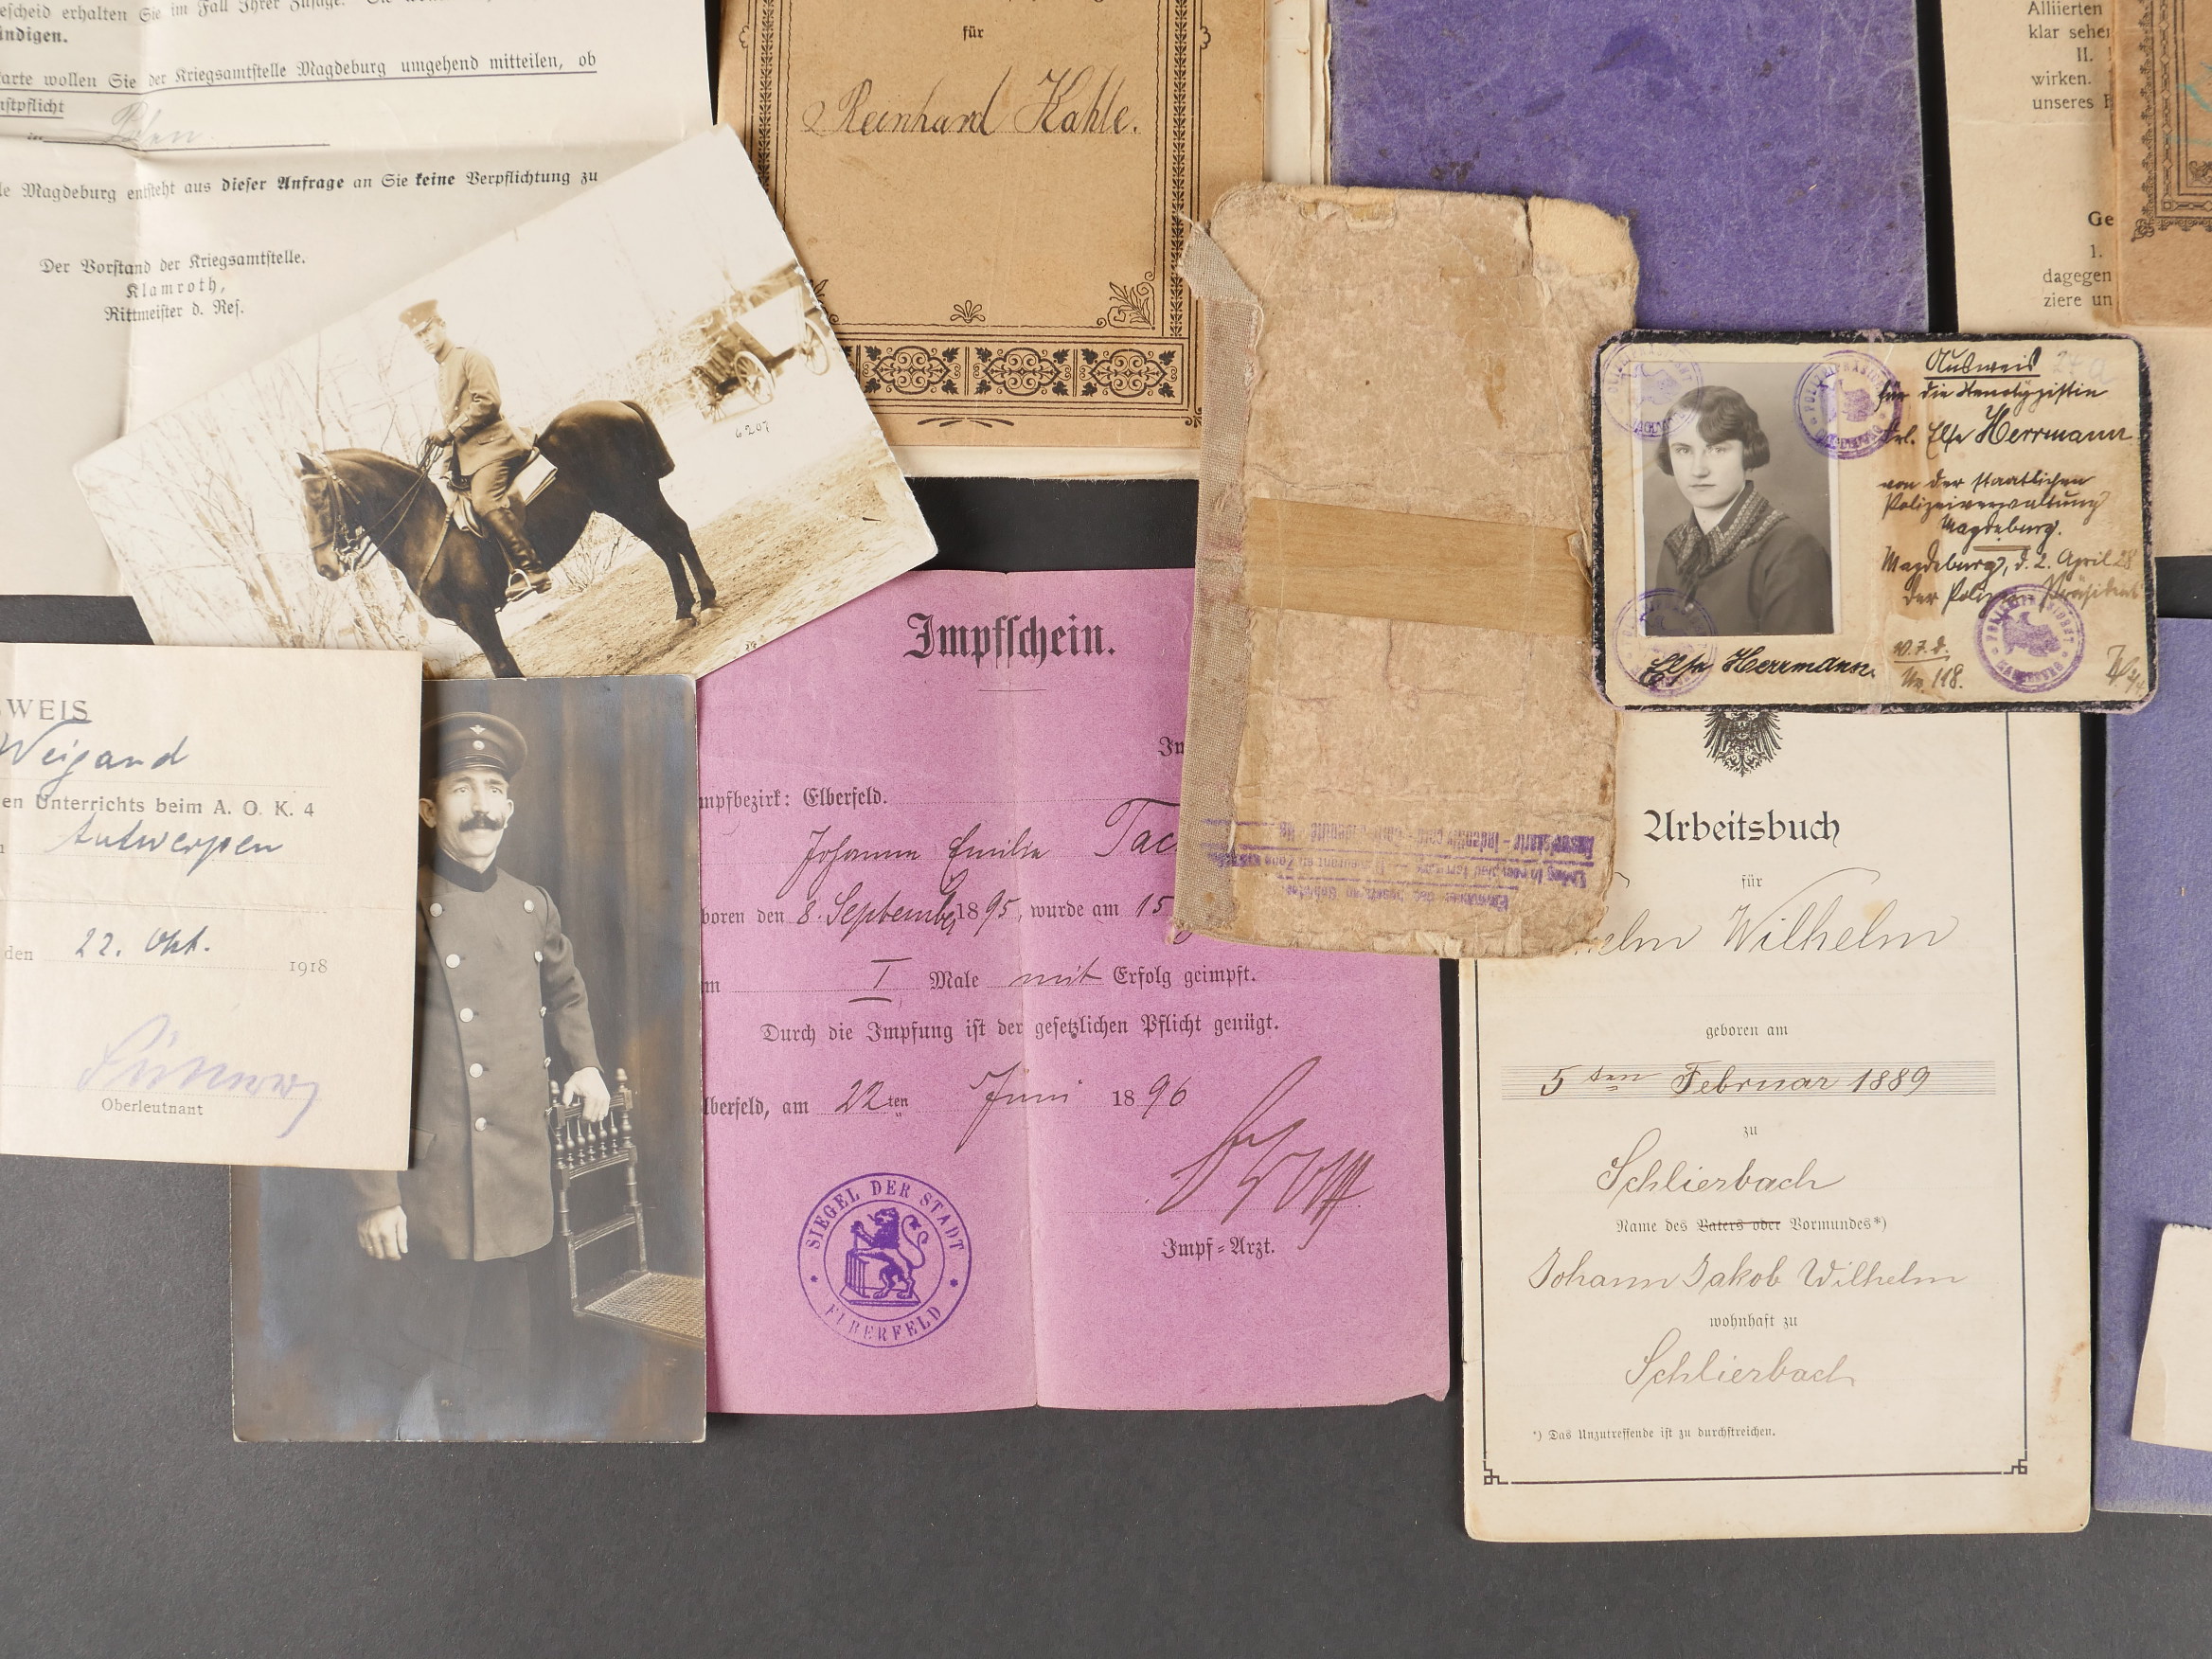 escheid erhalten Sie im Fall Ihrer Zusage.
ndigen.
arte wollen Sie der Kriegsamtstelle Magdeburg umgehend mitteilen, ob
nstpflicht
in Polen
le Magdeburg entsteht aus dieser Anfrage an Sie keine Verpflichtung zu
Der Vorstand der Kriegsamtstelle.
Klamroth,
Rittmeister d. Res.
für
Reinhard Kahle.
Alliierten
klar sehe
II.
wirken.
unseres
Ge
1.
dagegen
ziere un
6207
Ausweis
24a
für die Stenotypistin
Frl. Else Herrmann
von der staatlichen
Polizeiverwaltung
Magdeburg.
Magdeburg, d. 2. April 28
Der Polizei Präsident
Nr. 118.
Else Herrmann.
POLIZEIPRÄSIDENT
MAGDEBURG
WEIS
Weigand
en Unterrichts beim A. O. K. 4
Antwerpen
den 22. Okt. 1918
Oberleutnant
Impfschein.
Im
mpfbezirk: Elberfeld.
Johanna Emilie Tac
boren den 8. September 1895, wurde am 15
m I Male mit Erfolg geimpft.
Durch die Impfung ist der gesetzlichen Pflicht genügt.
lberfeld, am 22ten Juni 1896
Impf-Arzt.
SIEGEL DER STADT
ELBERFELD
Arbeitsbuch
für
elm Wilhelm
geboren am
5ten Februar 1889
zu
Schlierbach
Name des Vaters oder Vormundes*)
Johann Jakob Wilhelm
wohnhaft zu
Schlierbach
*) Das Unzutreffende ist zu durchstreichen.